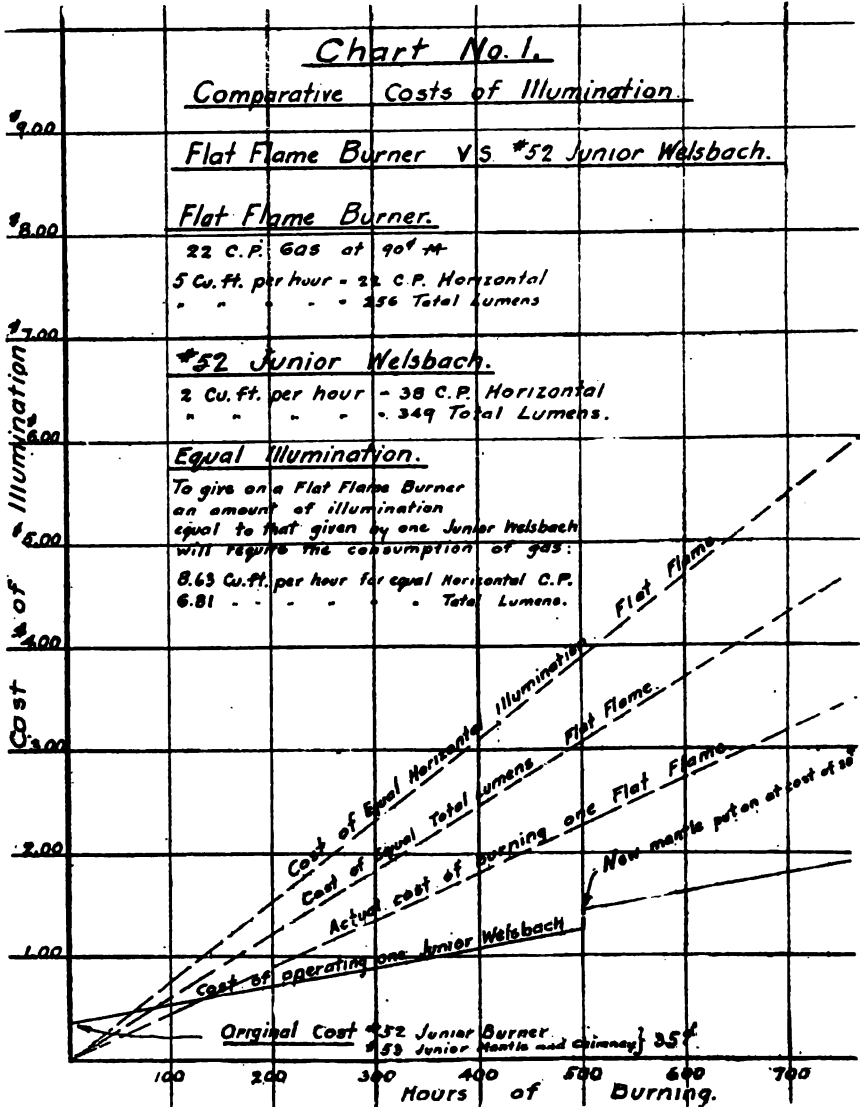 Chart No. 1.
Comparative Costs of Illumination
Flat Flame Burner VS #52 Junior Welsbach.
Flat Flame Burner.
22 C.P. Gas at 90¢ M
5 Cu. ft. per hour = 22 C.P. Horizontal
" " " " = 256 Total Lumens
#52 Junior Welsbach.
2 Cu. ft. per hour - 38 C.P. Horizontal
" " " " - 349 Total Lumens.
Equal Illumination.
To give on a Flat Flame Burner
an amount of illumination
equal to that given by one Junior Welsbach
will require the consumption of gas:
8.63 Cu. ft. per hour for equal Horizontal C.P.
6.81 - - - - " " Total Lumens.
$9.00
$8.00
$7.00
$6.00
$5.00
$4.00
$3.00
2.00
1.00
Cost of Illumination
Cost of Equal Horizontal Illumination Flat Flame
Cost of Equal Total Lumens Flat Flame.
Actual cost of burning one Flat Flame
New mantle put on at cost of 20¢
Cost of operating one Junior Welsbach
Original Cost #52 Junior Burner
#53 Junior Mantle and chimney } 35¢
100 200 300 400 500 600 700
Hours of Burning.